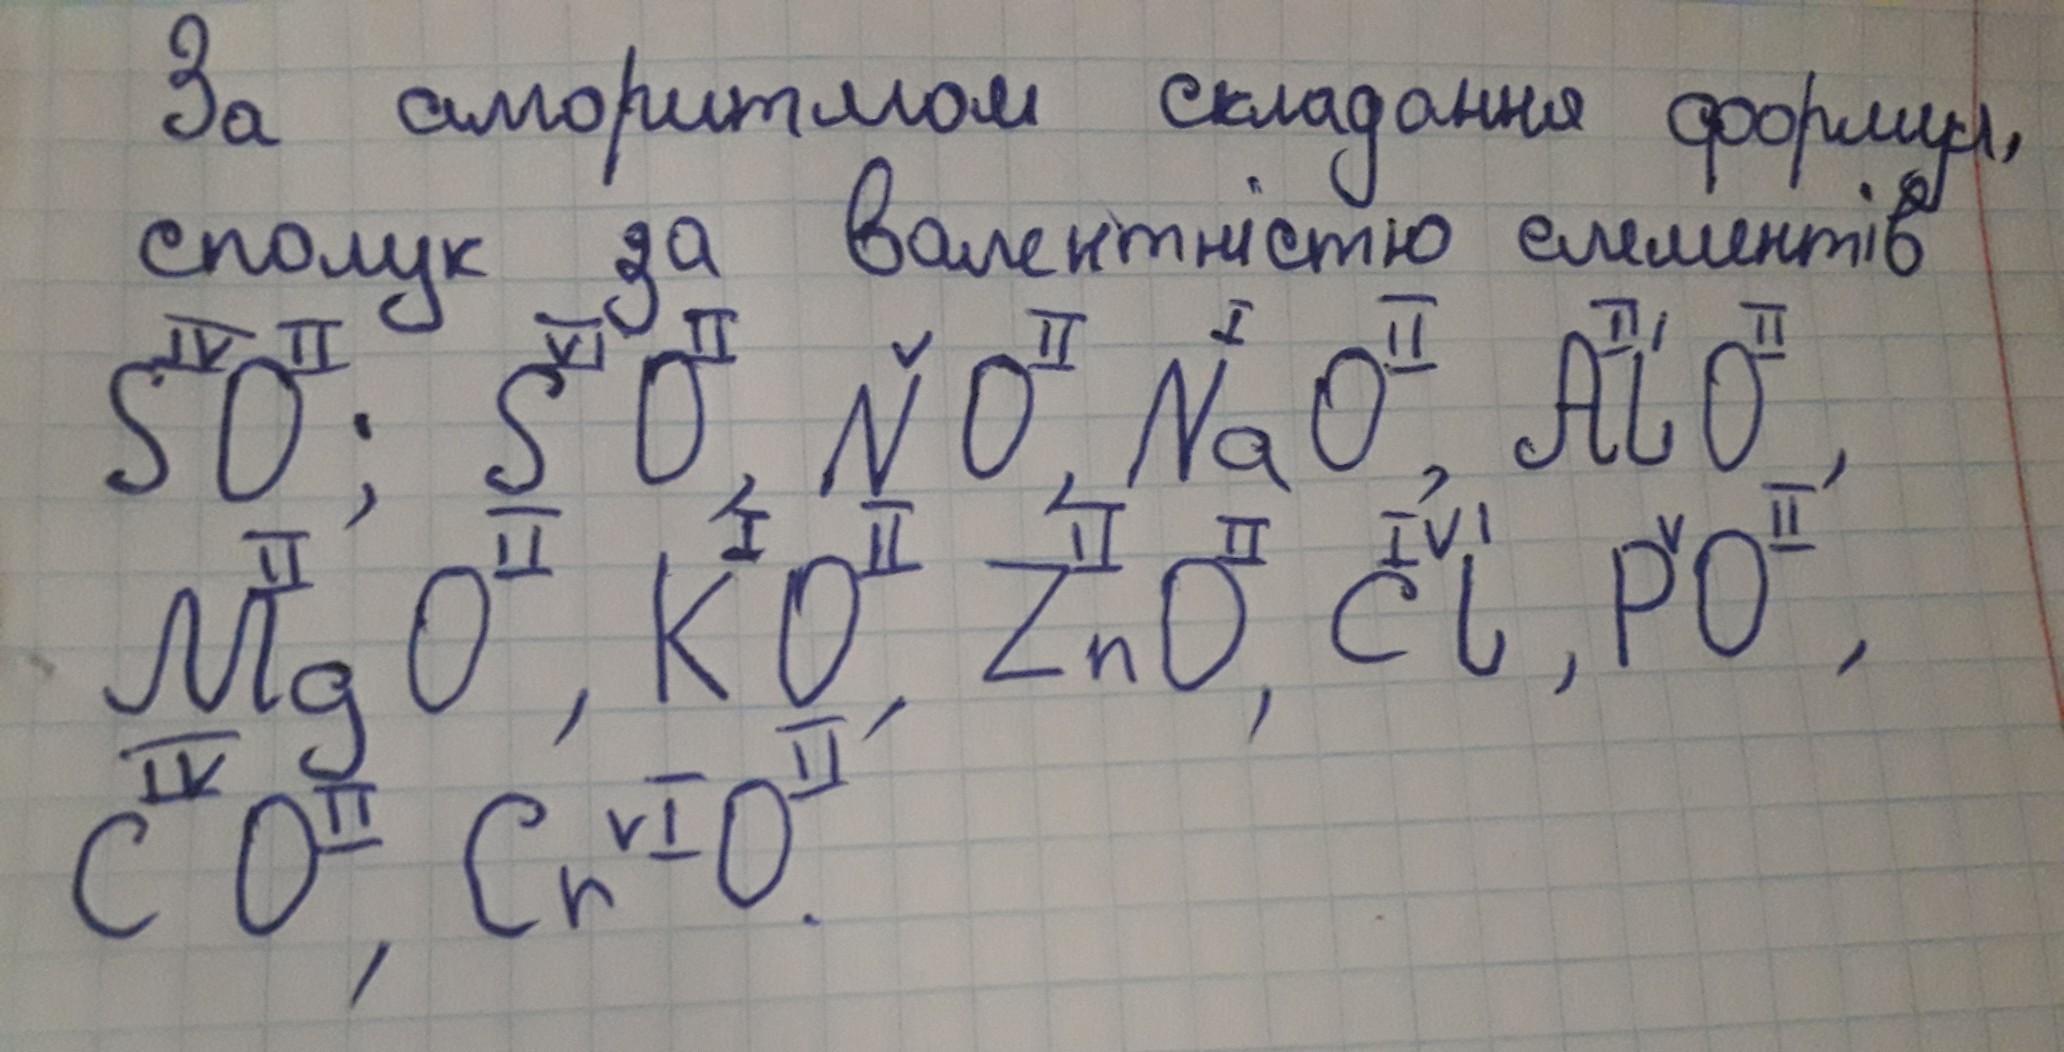 За алгоритмом складання формул,
сполук за валентністю елементів
S^IV O^II; S^VI O^II, N^V O^II, Na^I O^II, Al^III O^II,
Mg^II O^II, K^I O^II, Zn^II O^II, Cl^IVI, P^V O^II,
C^IV O^II, Cr^VI O^II.